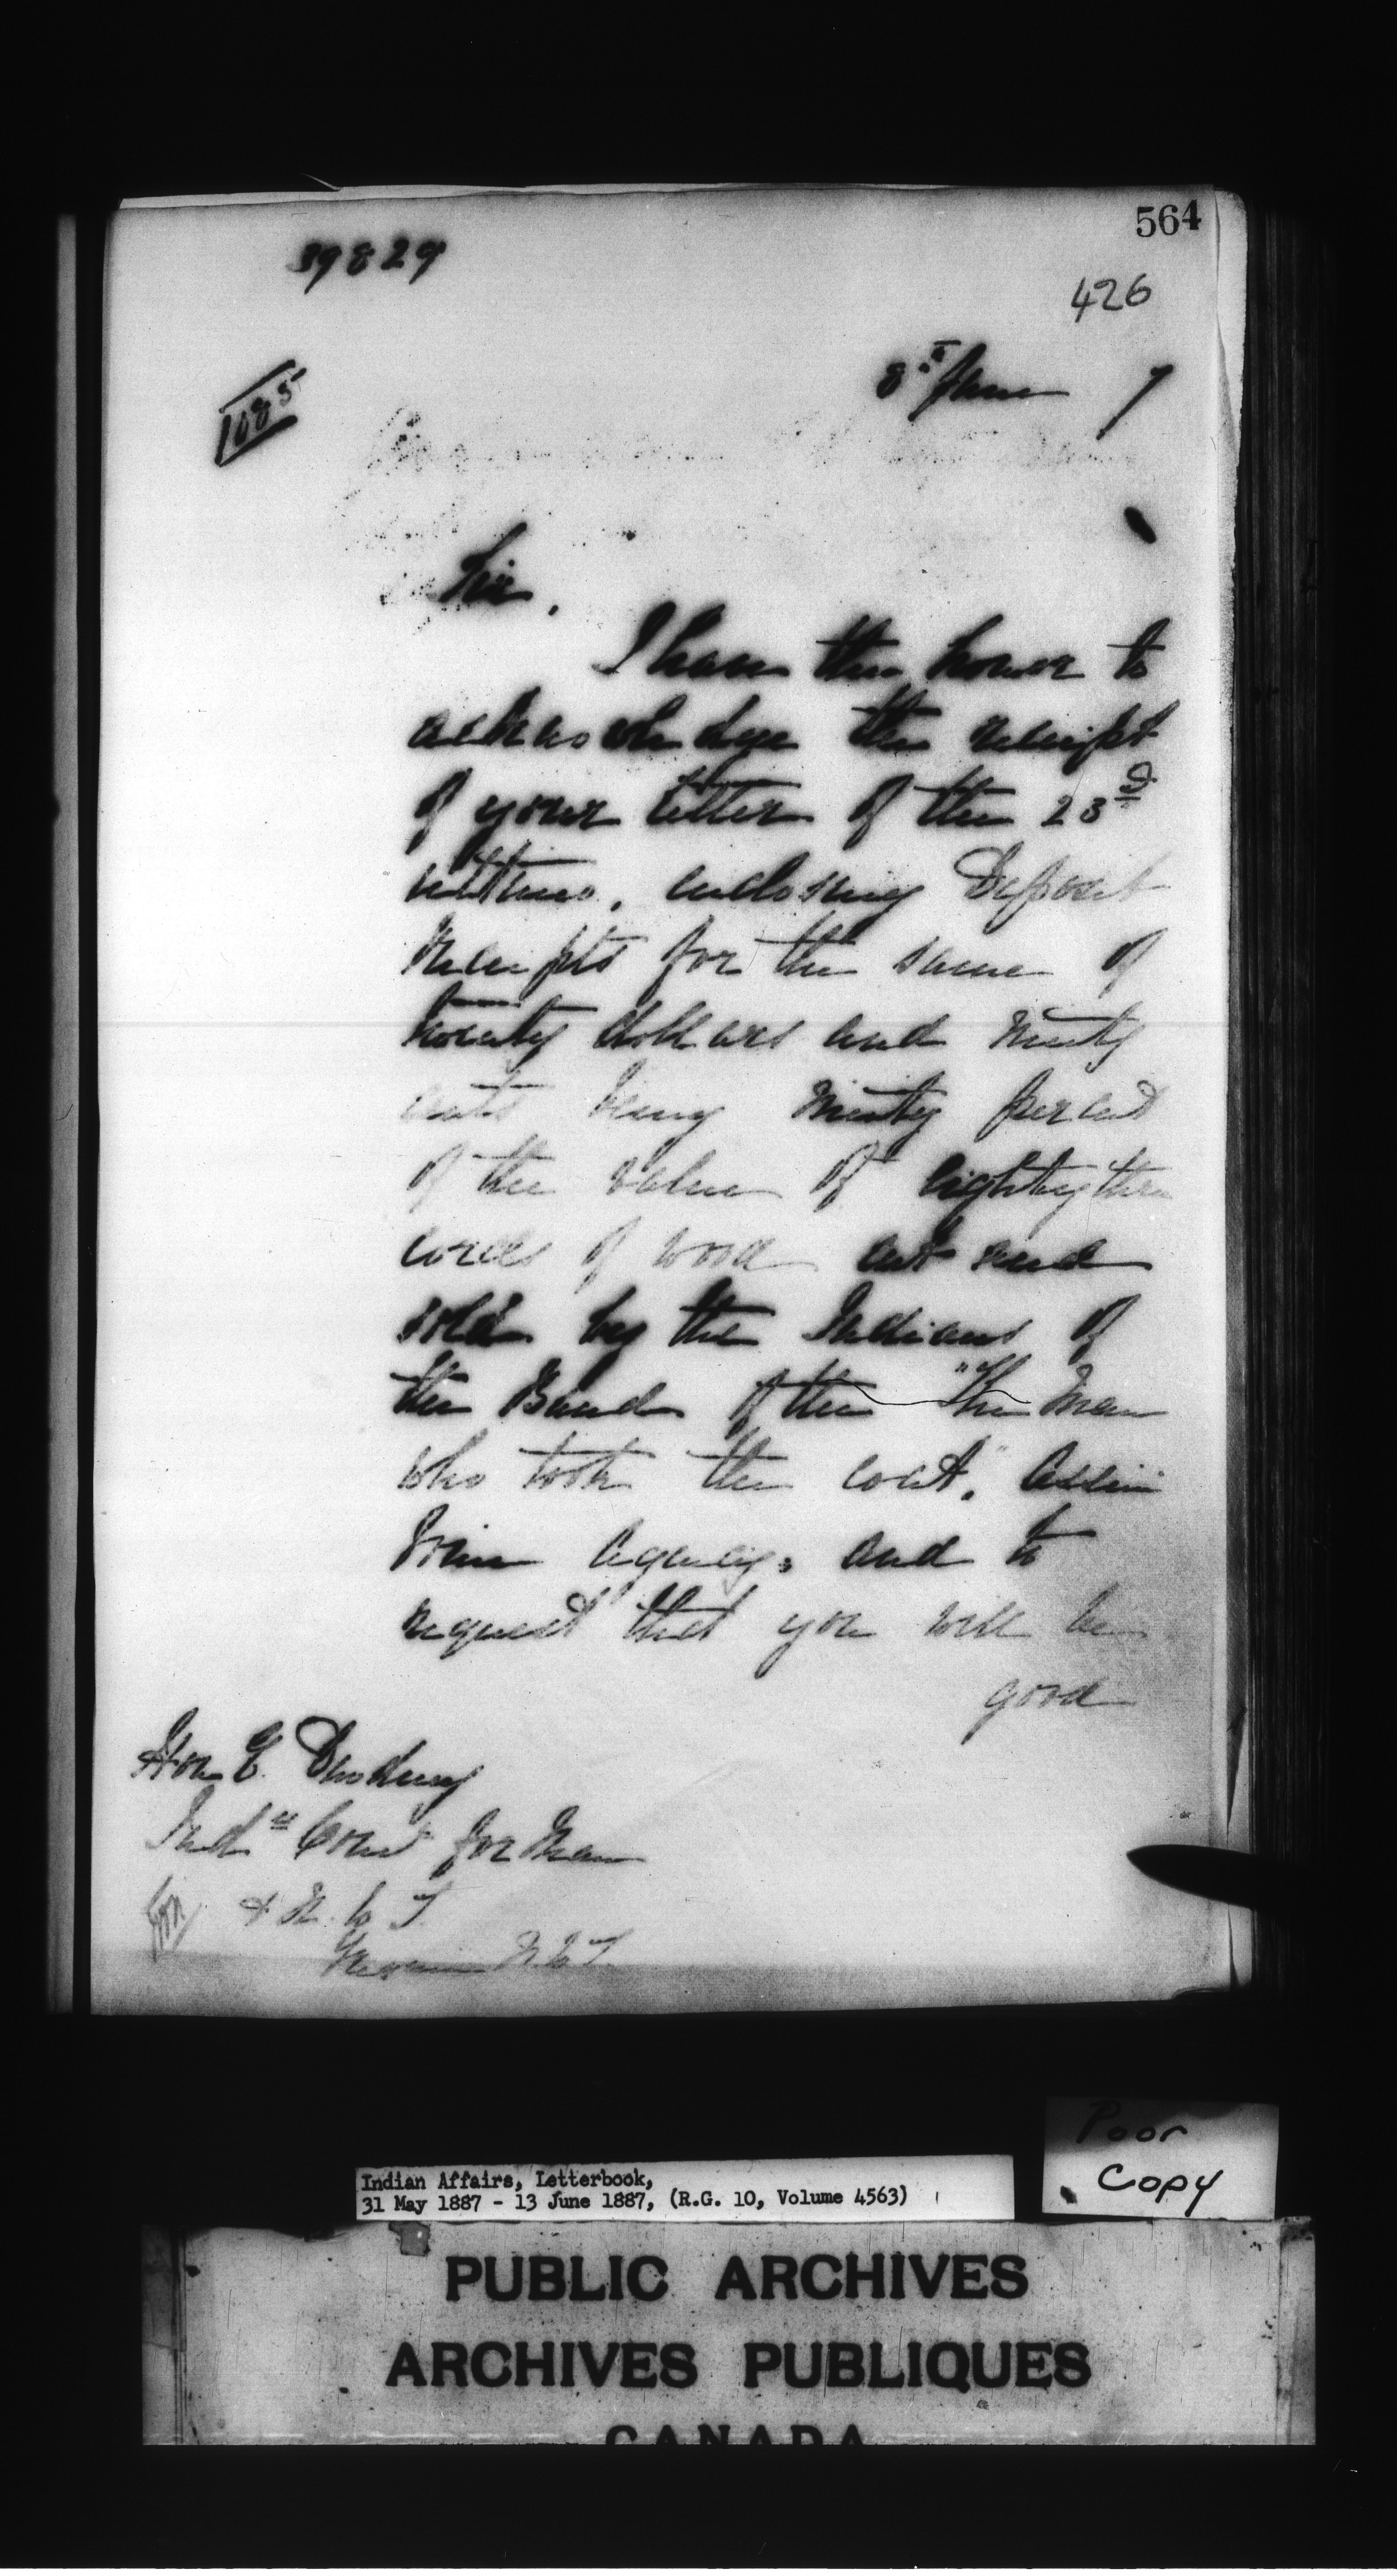 564
39829
426
1085
8th June 7
Sir,
I have the honor to
acknowledge the receipt
of your letter of the 23rd
ultimo, enclosing Deposit
Receipts for the sum of
twenty dollars and ninety
cents being ninety per cent
of the value of eighty three
cords of wood cut and
sold by the Indians of
the Band of the "The Man
who took the coat," Assini
boine Agency, and to
request that you will be
good
Hon E. Dewdney
Ind. Comr for Man
& N. W. T.
Regina N.W.T.
Poor
Copy
Indian Affairs, Letterbook,
31 May 1887 - 13 June 1887, (R.G. 10, Volume 4563)
PUBLIC ARCHIVES
ARCHIVES PUBLIQUES
CANADA